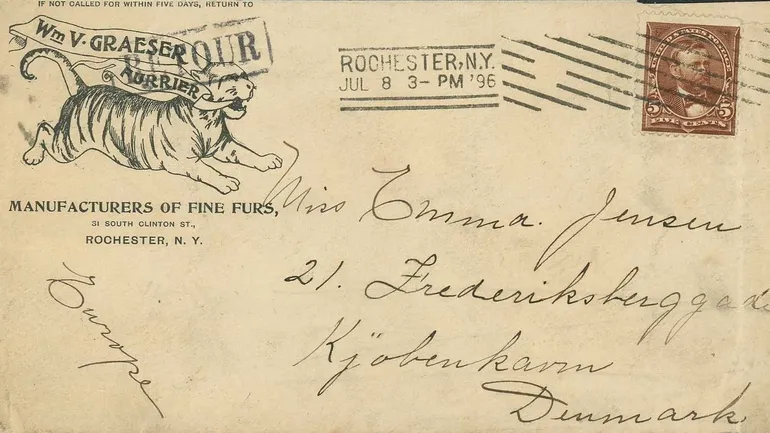 IF NOT CALLED FOR WITHIN FIVE DAYS, RETURN TO
Wm V. GRAESER
FURRIER
RETOUR
MANUFACTURERS OF FINE FURS,
31 SOUTH CLINTON ST.,
ROCHESTER, N. Y.
ROCHESTER, N.Y.
JUL 8 3-PM '96
UNITED STATES OF AMERICA
5 5
FIVE CENTS
Miss Emma. Jensen
21. Frederiksberggade
Kjöbenhavn
Denmark
Europe